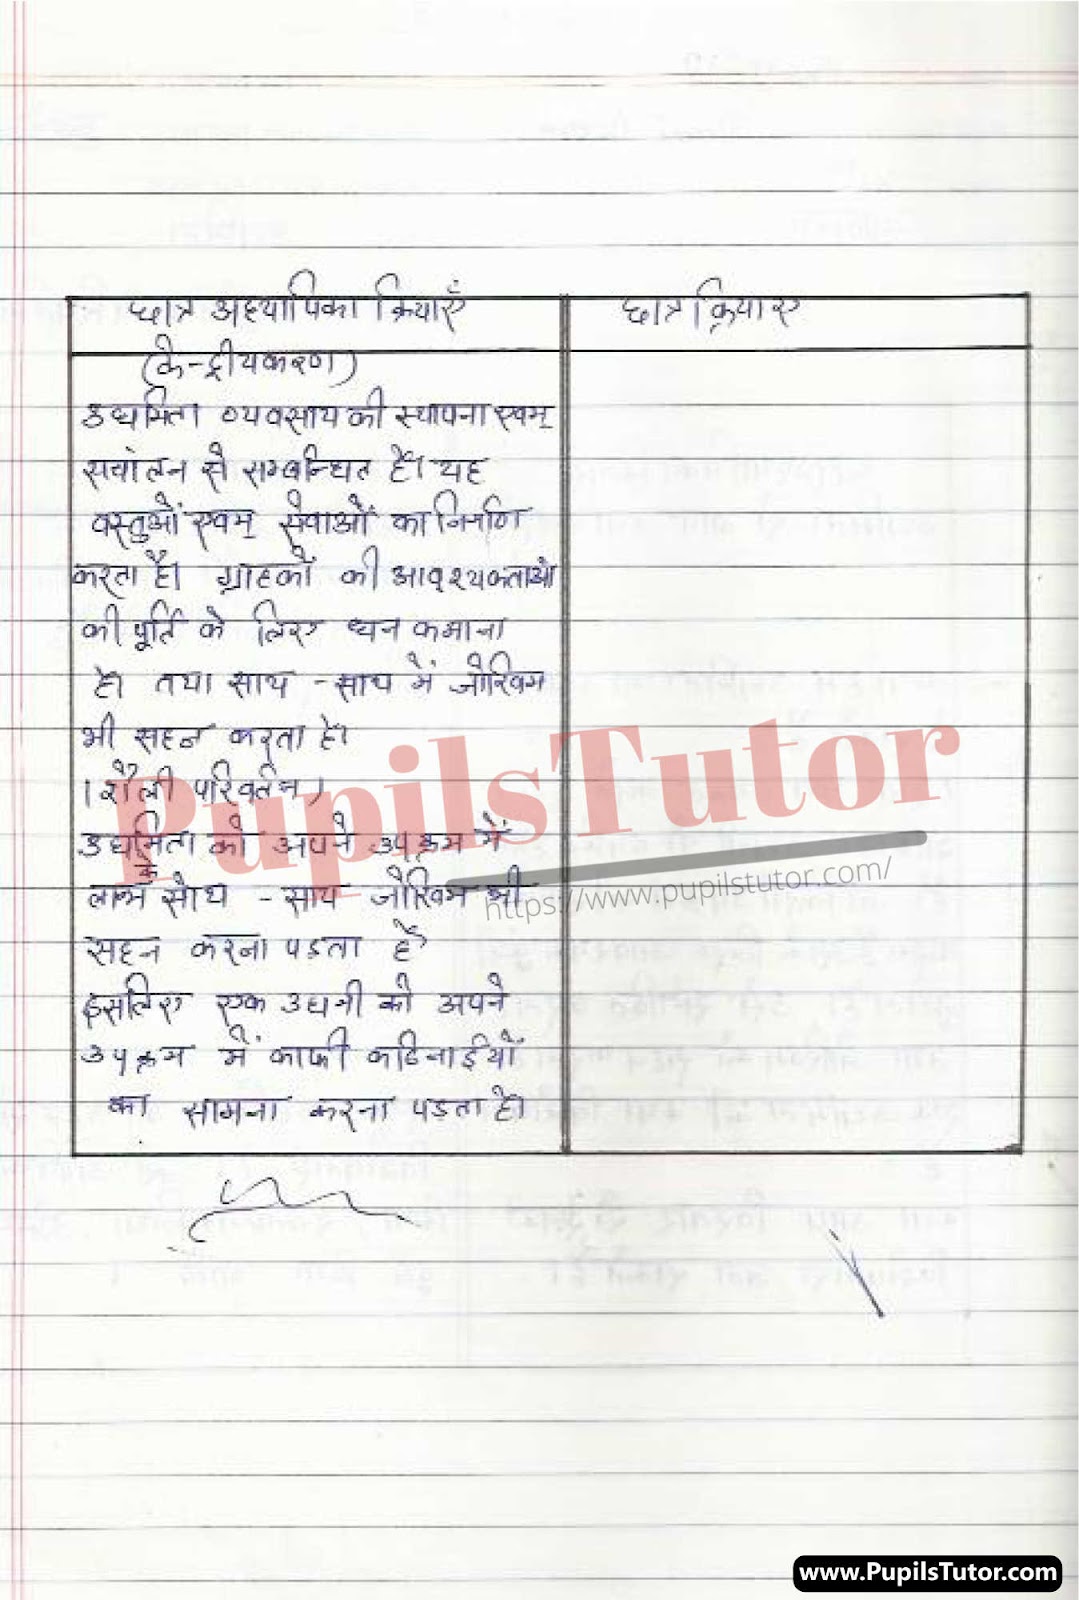 छात्र अध्यापिका क्रियाएँ
छात्र क्रियाए
(केन्द्रीयकरण)
उधमिता व्यवसाय की स्थापना एवम्
संचालन से सम्बन्धित है। यह
वस्तुओं एवम् सेवाओं का निर्माण
करता है। ग्राहकों की आवश्यकताओ
की पूर्ति के लिए धन कमाना
है। तथा साथ - साथ में जोखिम
भी सहन करता है।
(शैली परिवर्तन)
उधमिता को अपने उपक्रम में
लाभ के साथ - साथ जोखिम भी
सहन करना पडता है
इसलिए एक उधमी को अपने
उपक्रम में काफी कठिनाईयों
का सामना करना पड़ता है।
PupilsTutor
https://www.pupilstutor.com/
www.PupilsTutor.com